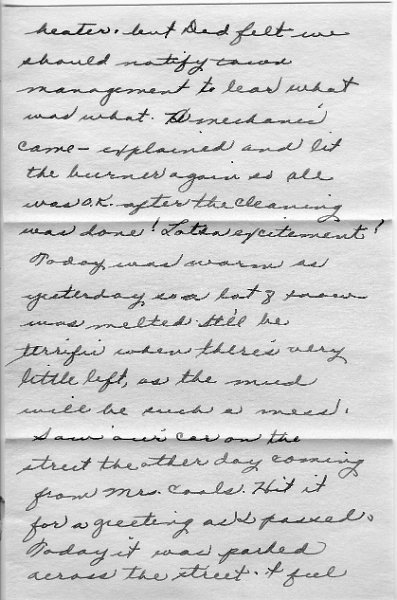 heater, but Dad felt we
should notify town
management to lear what
was what. A mechanic
came - explained and lit
the burner again so all
was O.K. after the cleaning
was done! Lotsa excitement!
Today was warm as
yesterday so a lot of snow
was melted. It'll be
terrific when there's very
little left, as the mud
will be such a mess!
Saw our car on the
street the other day coming
from Mrs. Coals. Hit it
for a greeting as I passed.
Today it was parked
across the street. I feel